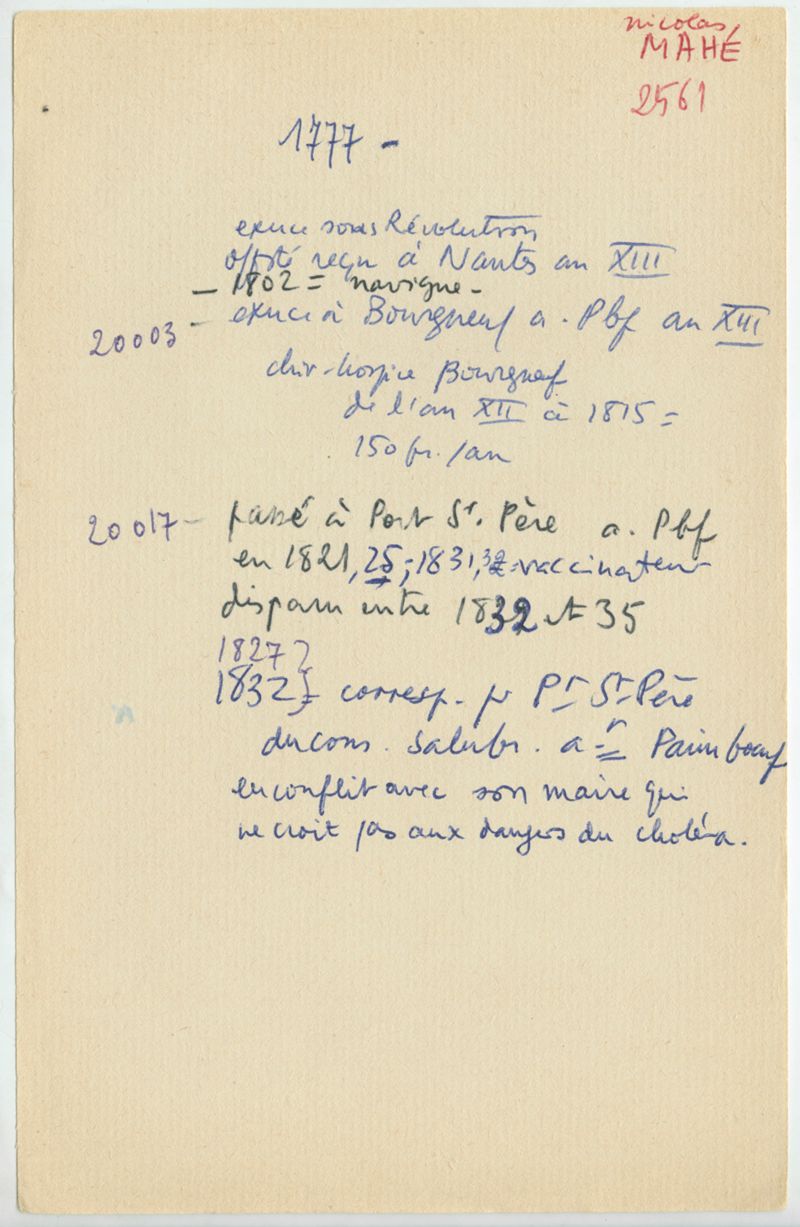 nicolas,
MAHÉ
2561
1777 -
exerce sous Révolution
offsté reçu à Nantes an XIII
- 1802 = navigue -
20003 - exerce à Bourgneuf a. Pbf an XIII
chir-hospice Bourgneuf
de l'an XII à 1815 =
150 fr. /an
20017 - passé à Port St. Père a. Pbf
en 1821, 25, 1831, 32 = vaccinateur
disparu entre 1832 et 35
1827 }
1832 } = corresp. pr Pt St Père
du cons. salubr. a r Paimboeuf
en conflit avec son maire qui
ne croit pas aux dangers du choléra.